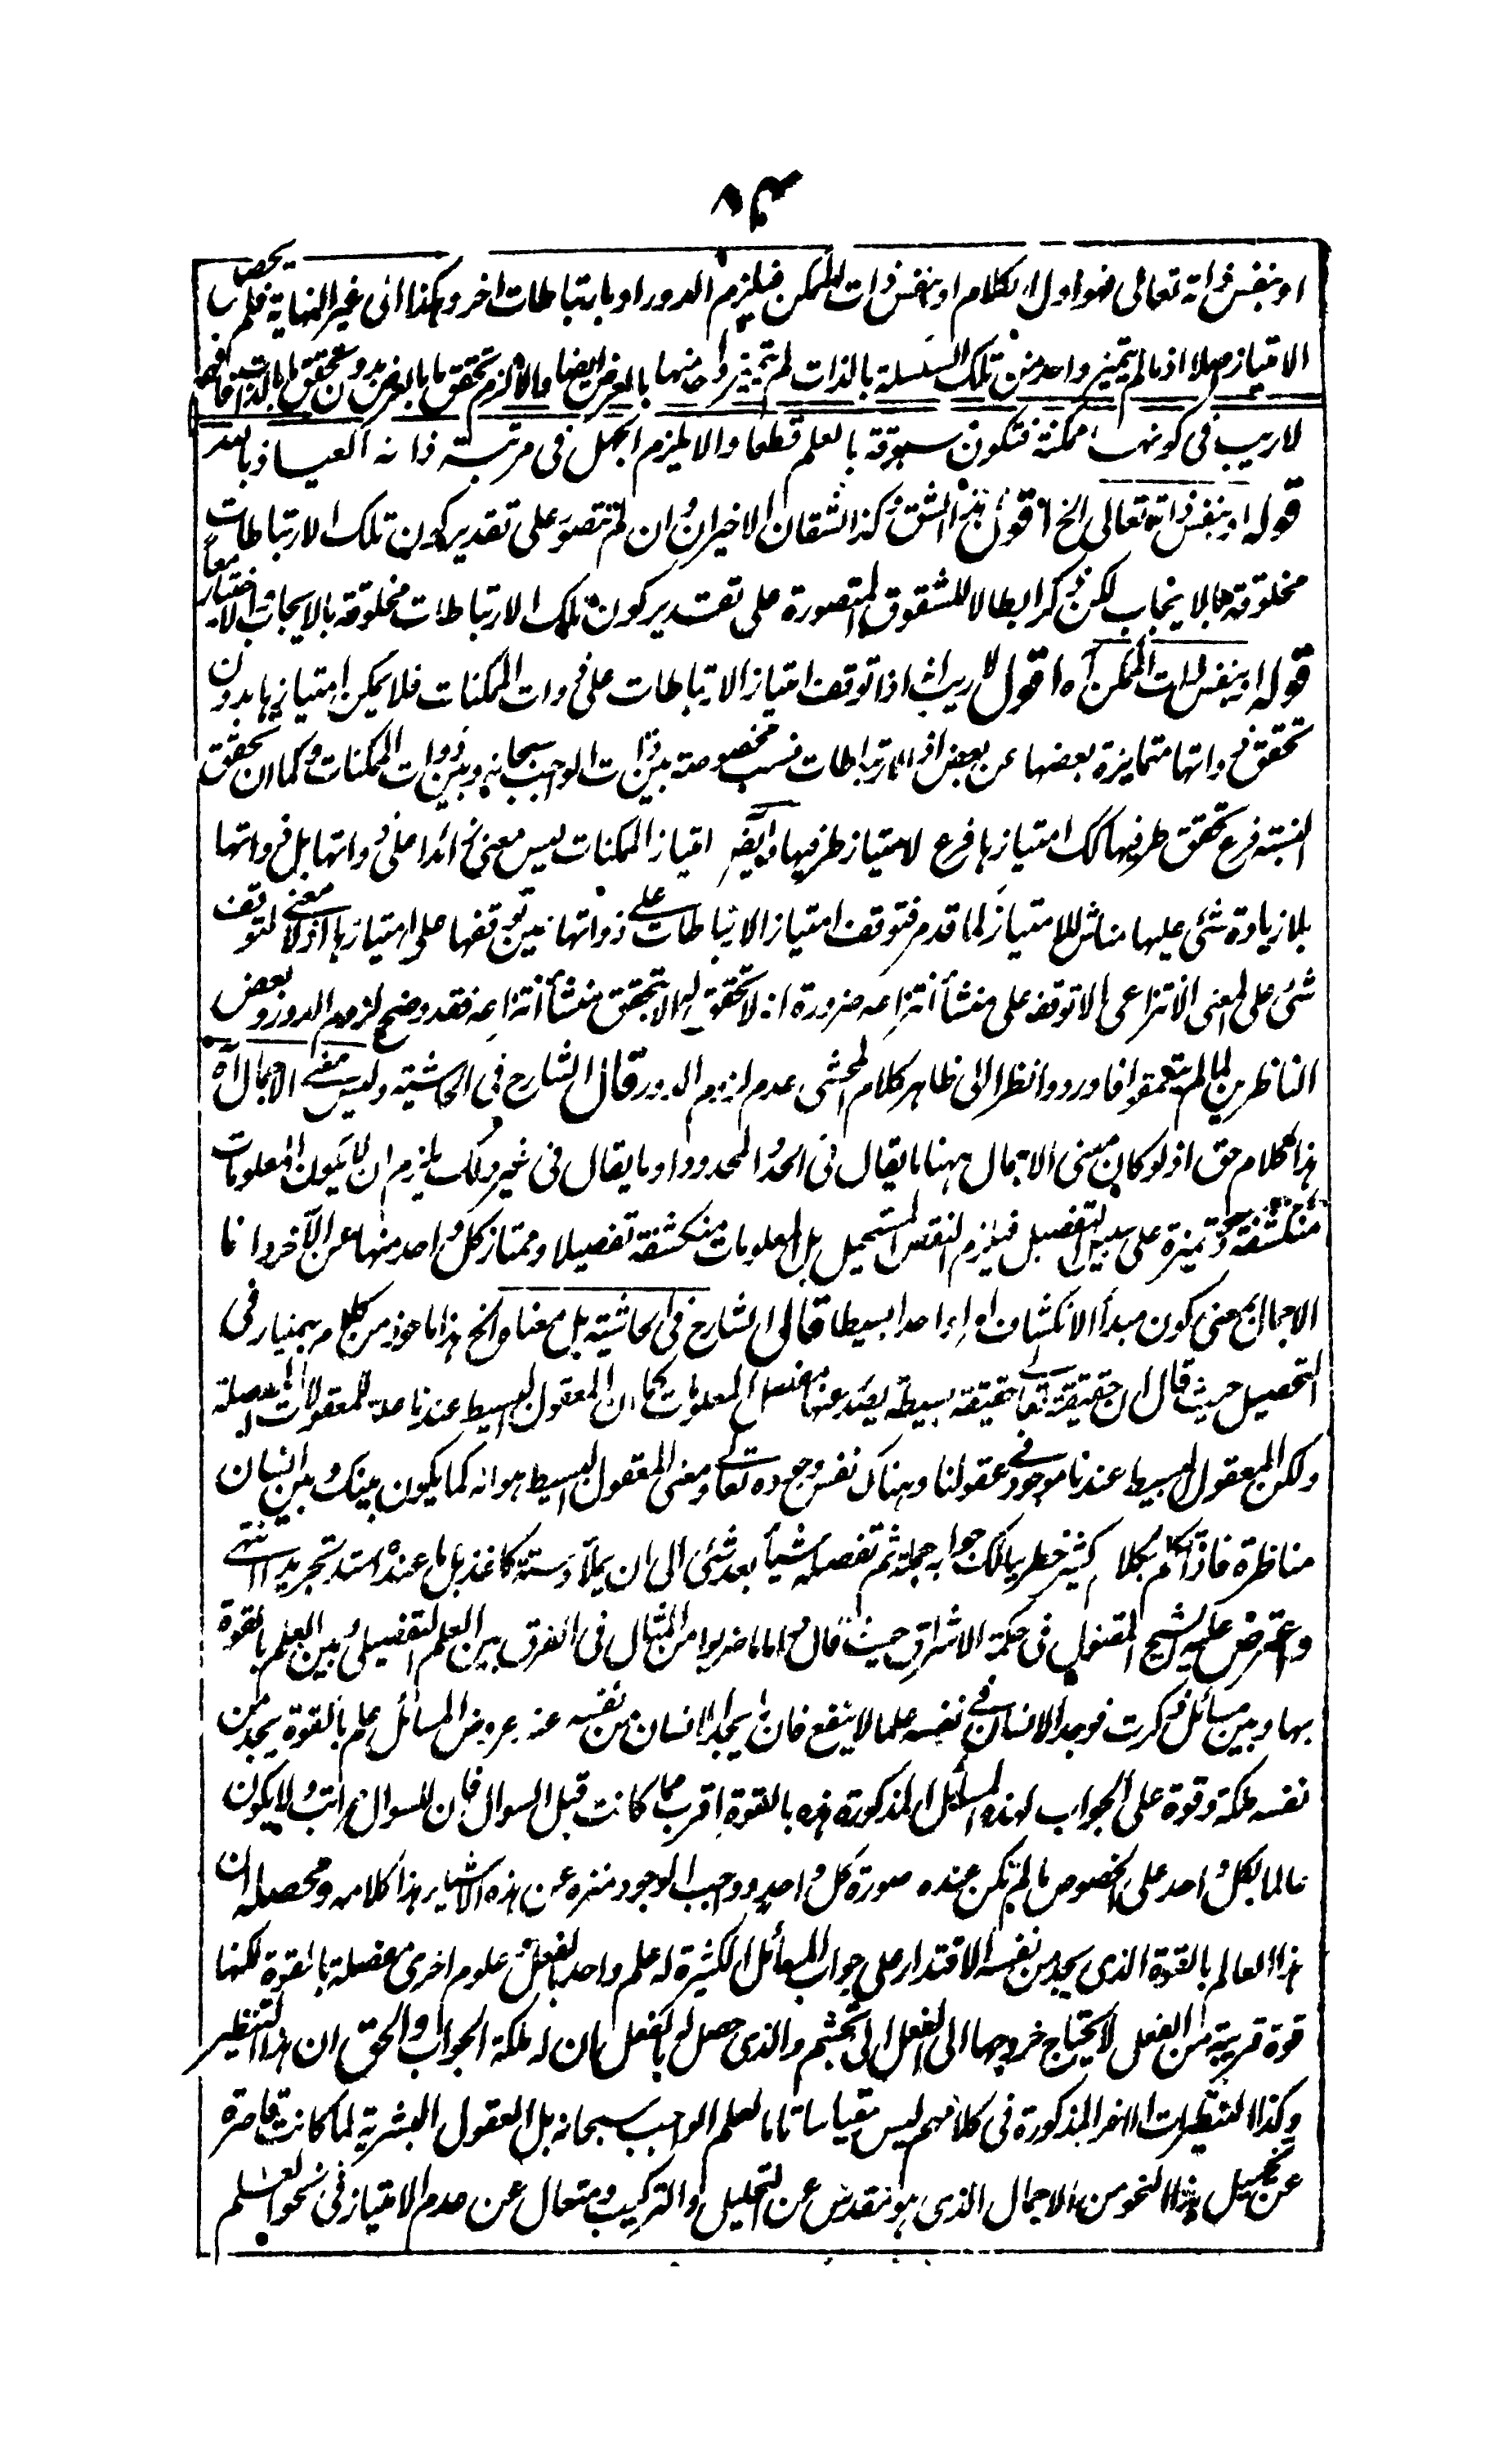 او بنفس ذاته تعالى فهو اول الكلام او بنفس ذات الممكن فيلزم الدور او بارتباطات اخر وهكذا الى غير النهاية فلم يحصل
الامتياز اصلا اذ ما لم يتميز واحد من تلك السلسلة بالذات لم يتميز واحد منها بالعرض ايضا والا لزم تحقق ما بالعرض بدون تحقق ما بالذات فافهم
لا ريب فى كونها ممكنة فتكون مسبوقة بالعلم قطعا والا يلزم الجهل فى مرتبة ذاته العياذ بالله
قوله او بنفس ذاته تعالى الخ اقول هذا الشق وكذا الشقان الاخيران وان لم تتصور على تقدير كون تلك الارتباطات
مخلوقة بالايجاب لكن ذكر ابطالا للشقوق المتصورة على تقدير كون تلك الارتباطات مخلوقة بالايجاب والاختيار معا
قوله او بنفس ذات الممكن آه اقول لا ريب انه اذا توقف امتياز الارتباطات على ذوات الممكنات فلا يمكن امتيازها بدون
تحقق ذواتها متمايزة بعضها عن بعض اذ الارتباطات نسب مخصوصة بين ذات الواجب سبحانه وبين ذوات الممكنات وكما ان تحقق
النسبة فرع تحقق طرفيها كك امتيازها فرع لامتياز طرفيها وايضا امتياز الممكنات ليس معنى زائدا على ذواتها بل ذواتها
بلا زيادة شئ عليها مناش للامتياز لما قدم فتوقف امتياز الارتباطات على ذواتها عين توقفها على امتيازها اذ لا معنى لتوقف
شئ على المعنى الانتزاعى الا توقفه على منشأ انتزاعه ضرورة انه لا تحقق له الا بتحقق منشأ انتزاعه فقد وضح لزوم الدور وبعض
الناظرين لما لم يتعمقوا فاوردوا نظرا الى ظاهر كلام المحشى عدم لزوم الدور قال الشارح فى الحاشية وليس معنى الاجمال آه
هذا كلام حق اذ لو كان معنى الاجمال ههنا ما يقال فى الحد والمحدود او ما يقال فى غير ذلك يلزم ان لا يكون المعلومات
منكشفة ومتميزة على سبيل التفصيل فيلزم النقص المستحيل بل المعلومات منكشفة تفصيلا وممتاز كل واحد منها عن الآخر وانما
الاجمال بمعنى كون مبدأ الانكشاف امرا واحدا بسيطا قال الشارح فى الحاشية بل معناه الخ هذا ماخوذ من كلام بهمنيار فى
التحصيل حيث قال ان حقيقته تعالى حقيقة بسيطة يصدر عنها مفصل المعلومات كما ان المعقول البسيط عندنا علة للمعقولات المفصلة
ولكن المعقول البسيط عندنا موجود فى عقولنا وهناك نفس وجوده تعالى ومعنى المعقول البسيط هو انه كما يكون بينك وبين انسان
مناظرة فاذا تكلم بكلام كثير خطر ببالك جوابه جملة ثم تفصله شيأ بعد شئ الى ان يملأ دستة كاغذ بل ما عند الله اشد تجريدا انتهى
واعترض عليه الشيخ المقتول فى حكمة الاشراق حيث قال واما ما ضربوا من المثال فى الفرق بين العلم التفصيلى وبين العلم بالقوة
بها وبين مسائل ذكرت فوجد الانسان فى نفسه علما لا ينفع فان ما يجد الانسان من نفسه عند عروض المسائل علم بالقوة يجد من
نفسه ملكة وقوة على الجواب لهذه المسائل المذكورة وهذه بالقوة اقرب مما كانت قبل السوال فان للسوال مراتب ولا يكون
عالما بكل واحد على الخصوص ما لم تكن عنده صورة كل واحد وواجب الوجود منزه عن هذه الاشياء هذا كلامه ومحصله ان
هذا العالم بالقوة الذى يجد من نفسه الاقتدار على جواب المسائل الكثيرة له علم واحد بالفعل وعلوم اخرى مفصلة بالقوة لكنها
قوة قريبة من الفعل لا يحتاج خروجها الى الفعل الى تجشم والذى حصل له بالفعل بان له ملكة الجواب والحق ان هذا التنظير
وكذا التنظيرات الاخر المذكورة فى كلامهم ليس مقياسا تاما لعلم الواجب سبحانه بل العقول البشرية لما كانت قاصرة
عن تخييل هذا النحو من الاجمال الذى هو متقدس عن التحليل والتركيب ومتعال عن عدم الامتياز فى نحو العلم